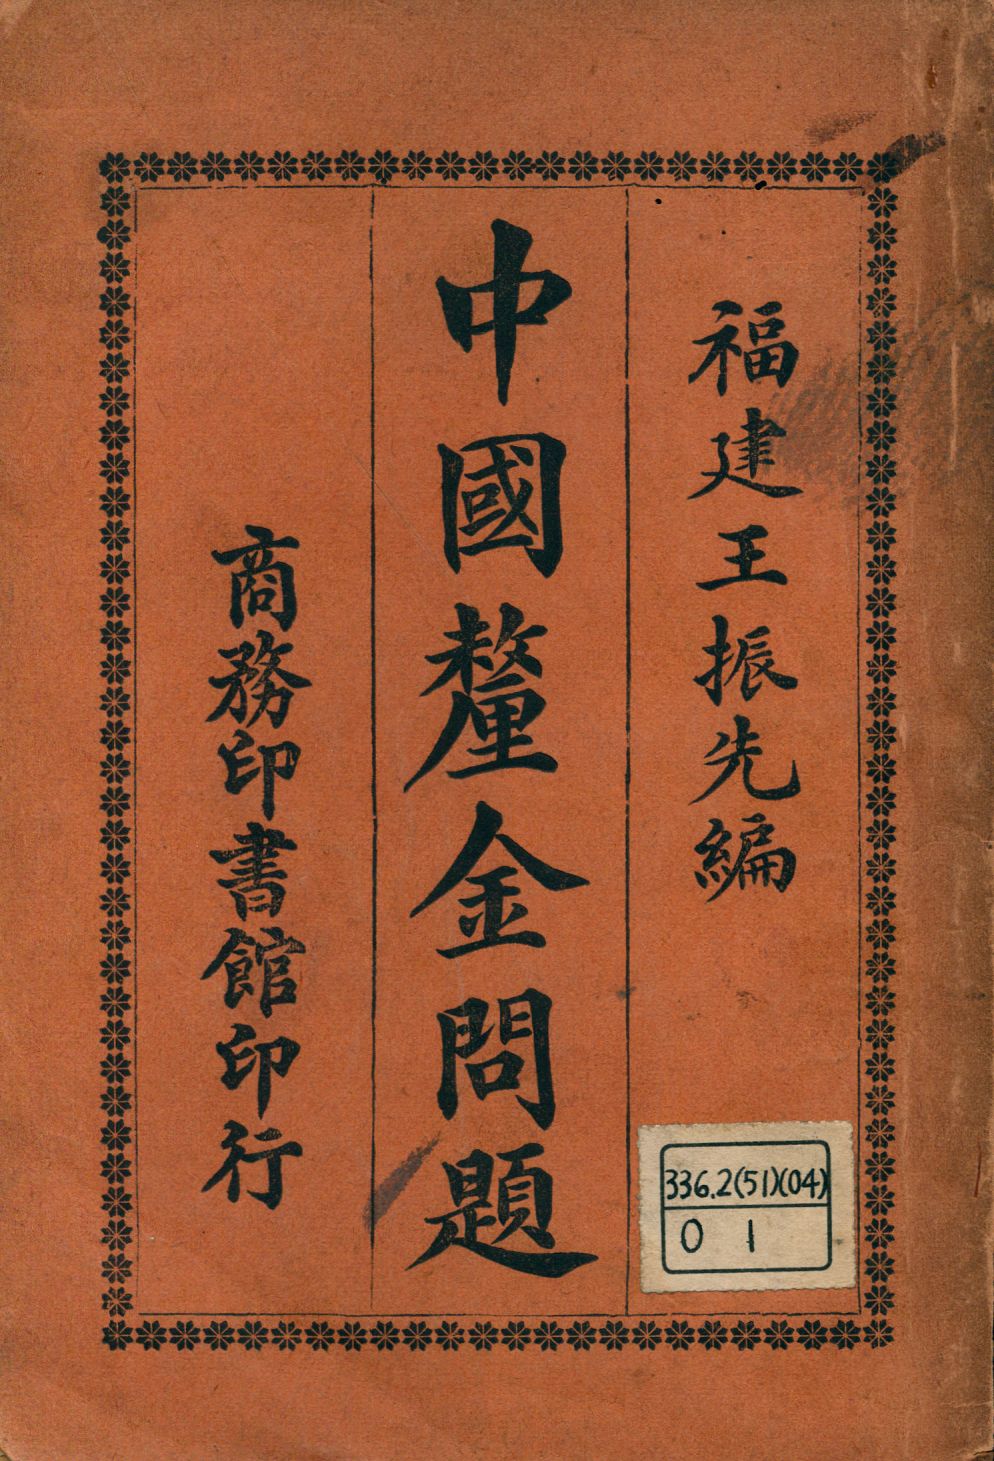 福建王振先編
中國釐金問題
商務印書館印行
336.2(51)(04)
01